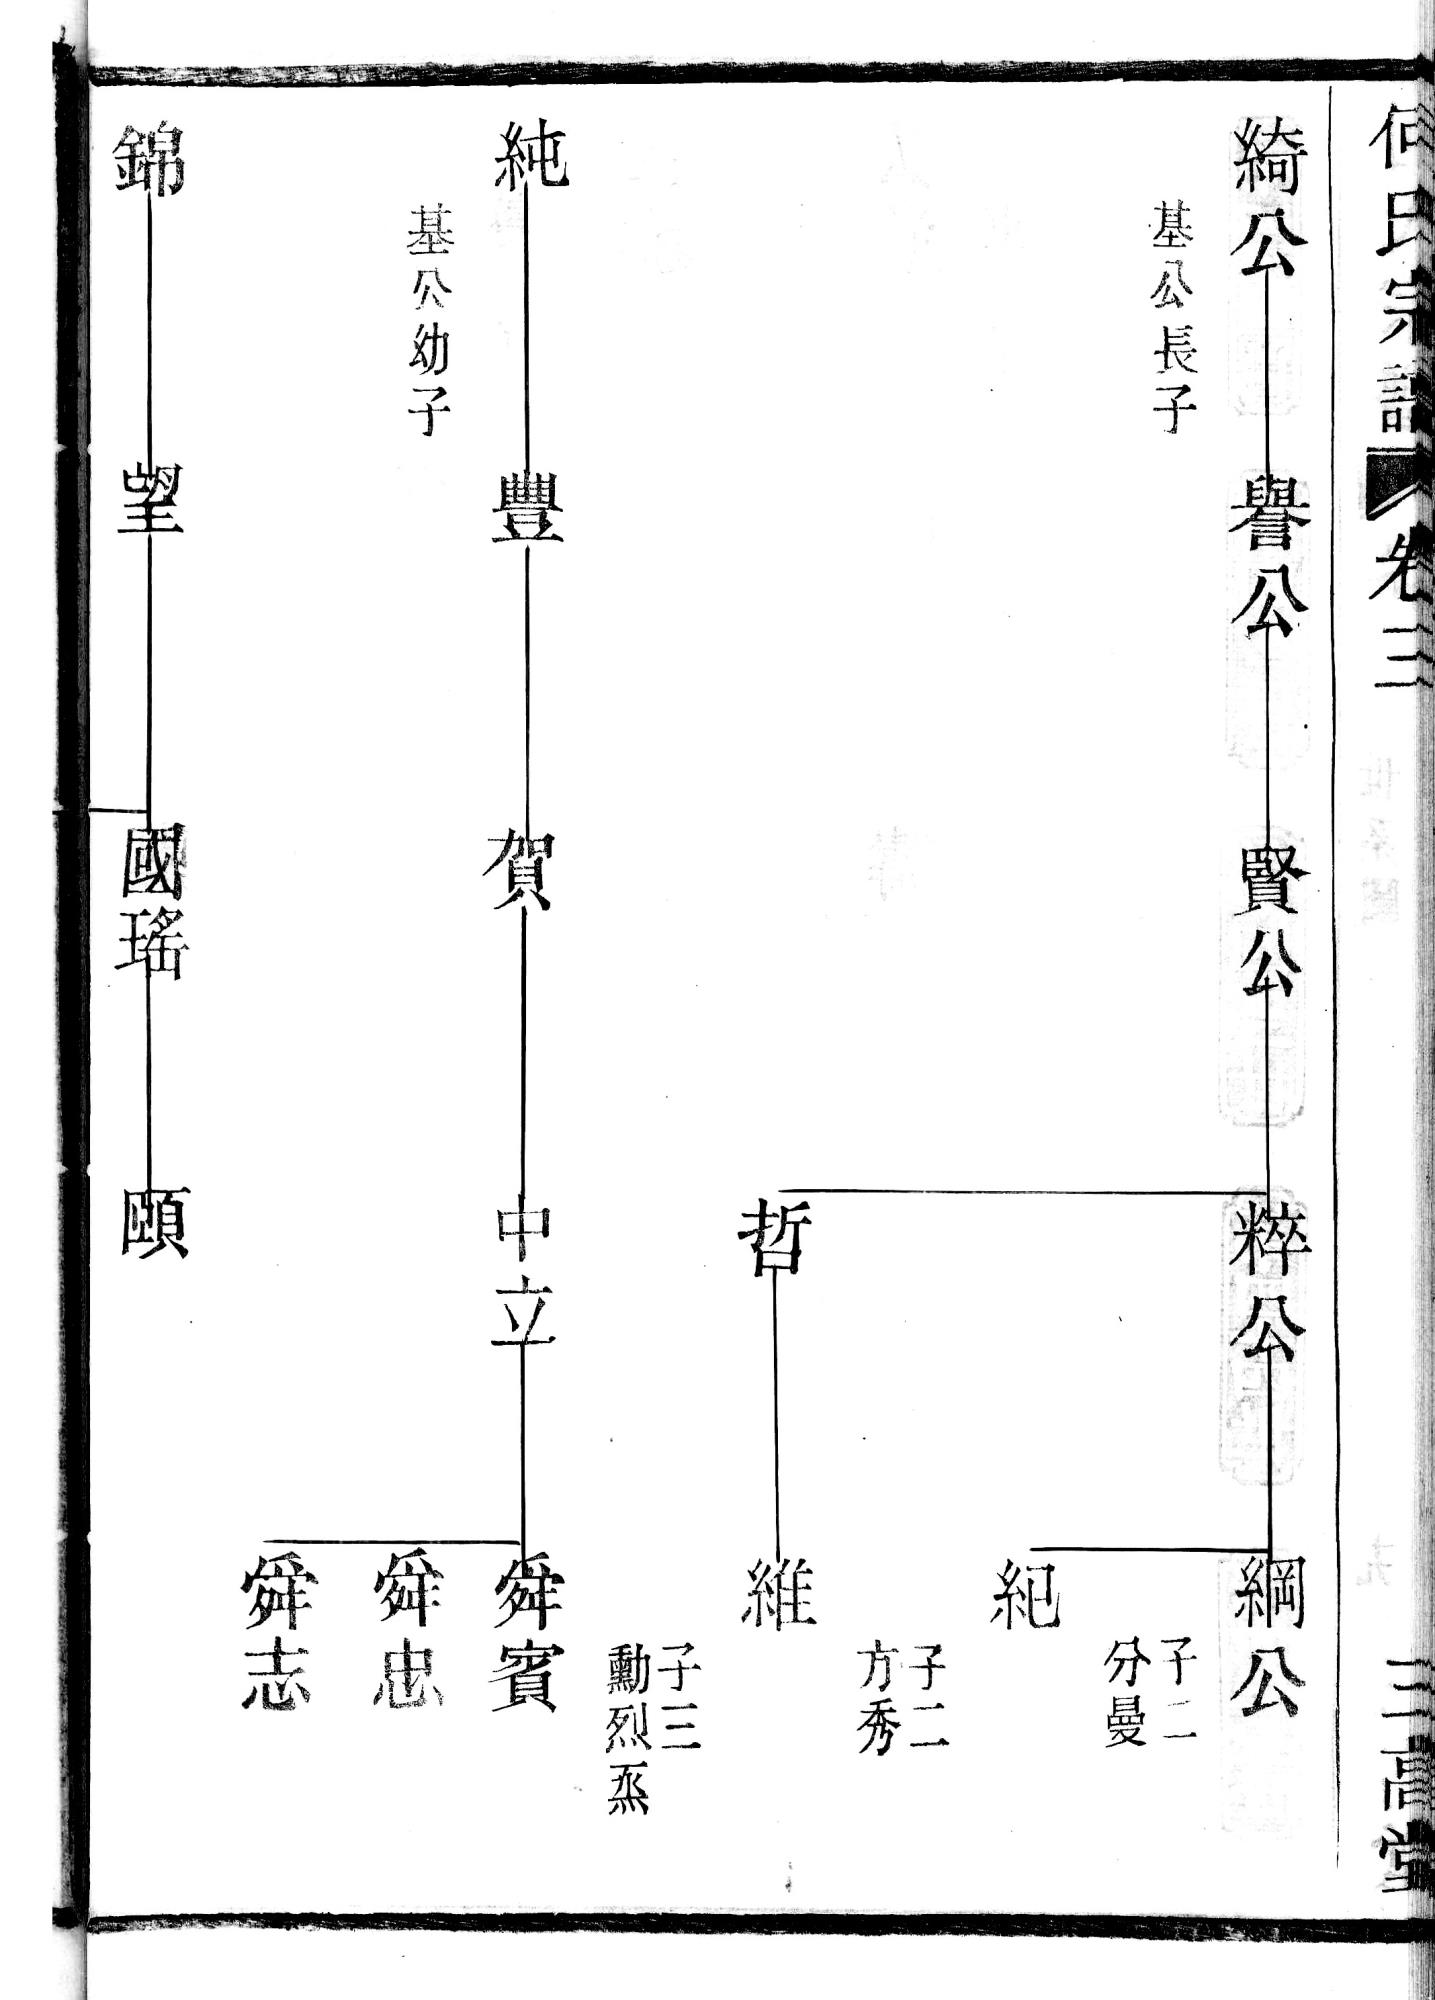 何氏宗譜 卷三
三高堂
綺公 譽公 賢公 粹公 綱公
基公長子
子二
分曼
紀
子二
方秀
哲 維
子三
勳烈烝
純 豐 賀 中立 舜賓
基公幼子
舜忠
舜志
錦 望 國瑤 頤